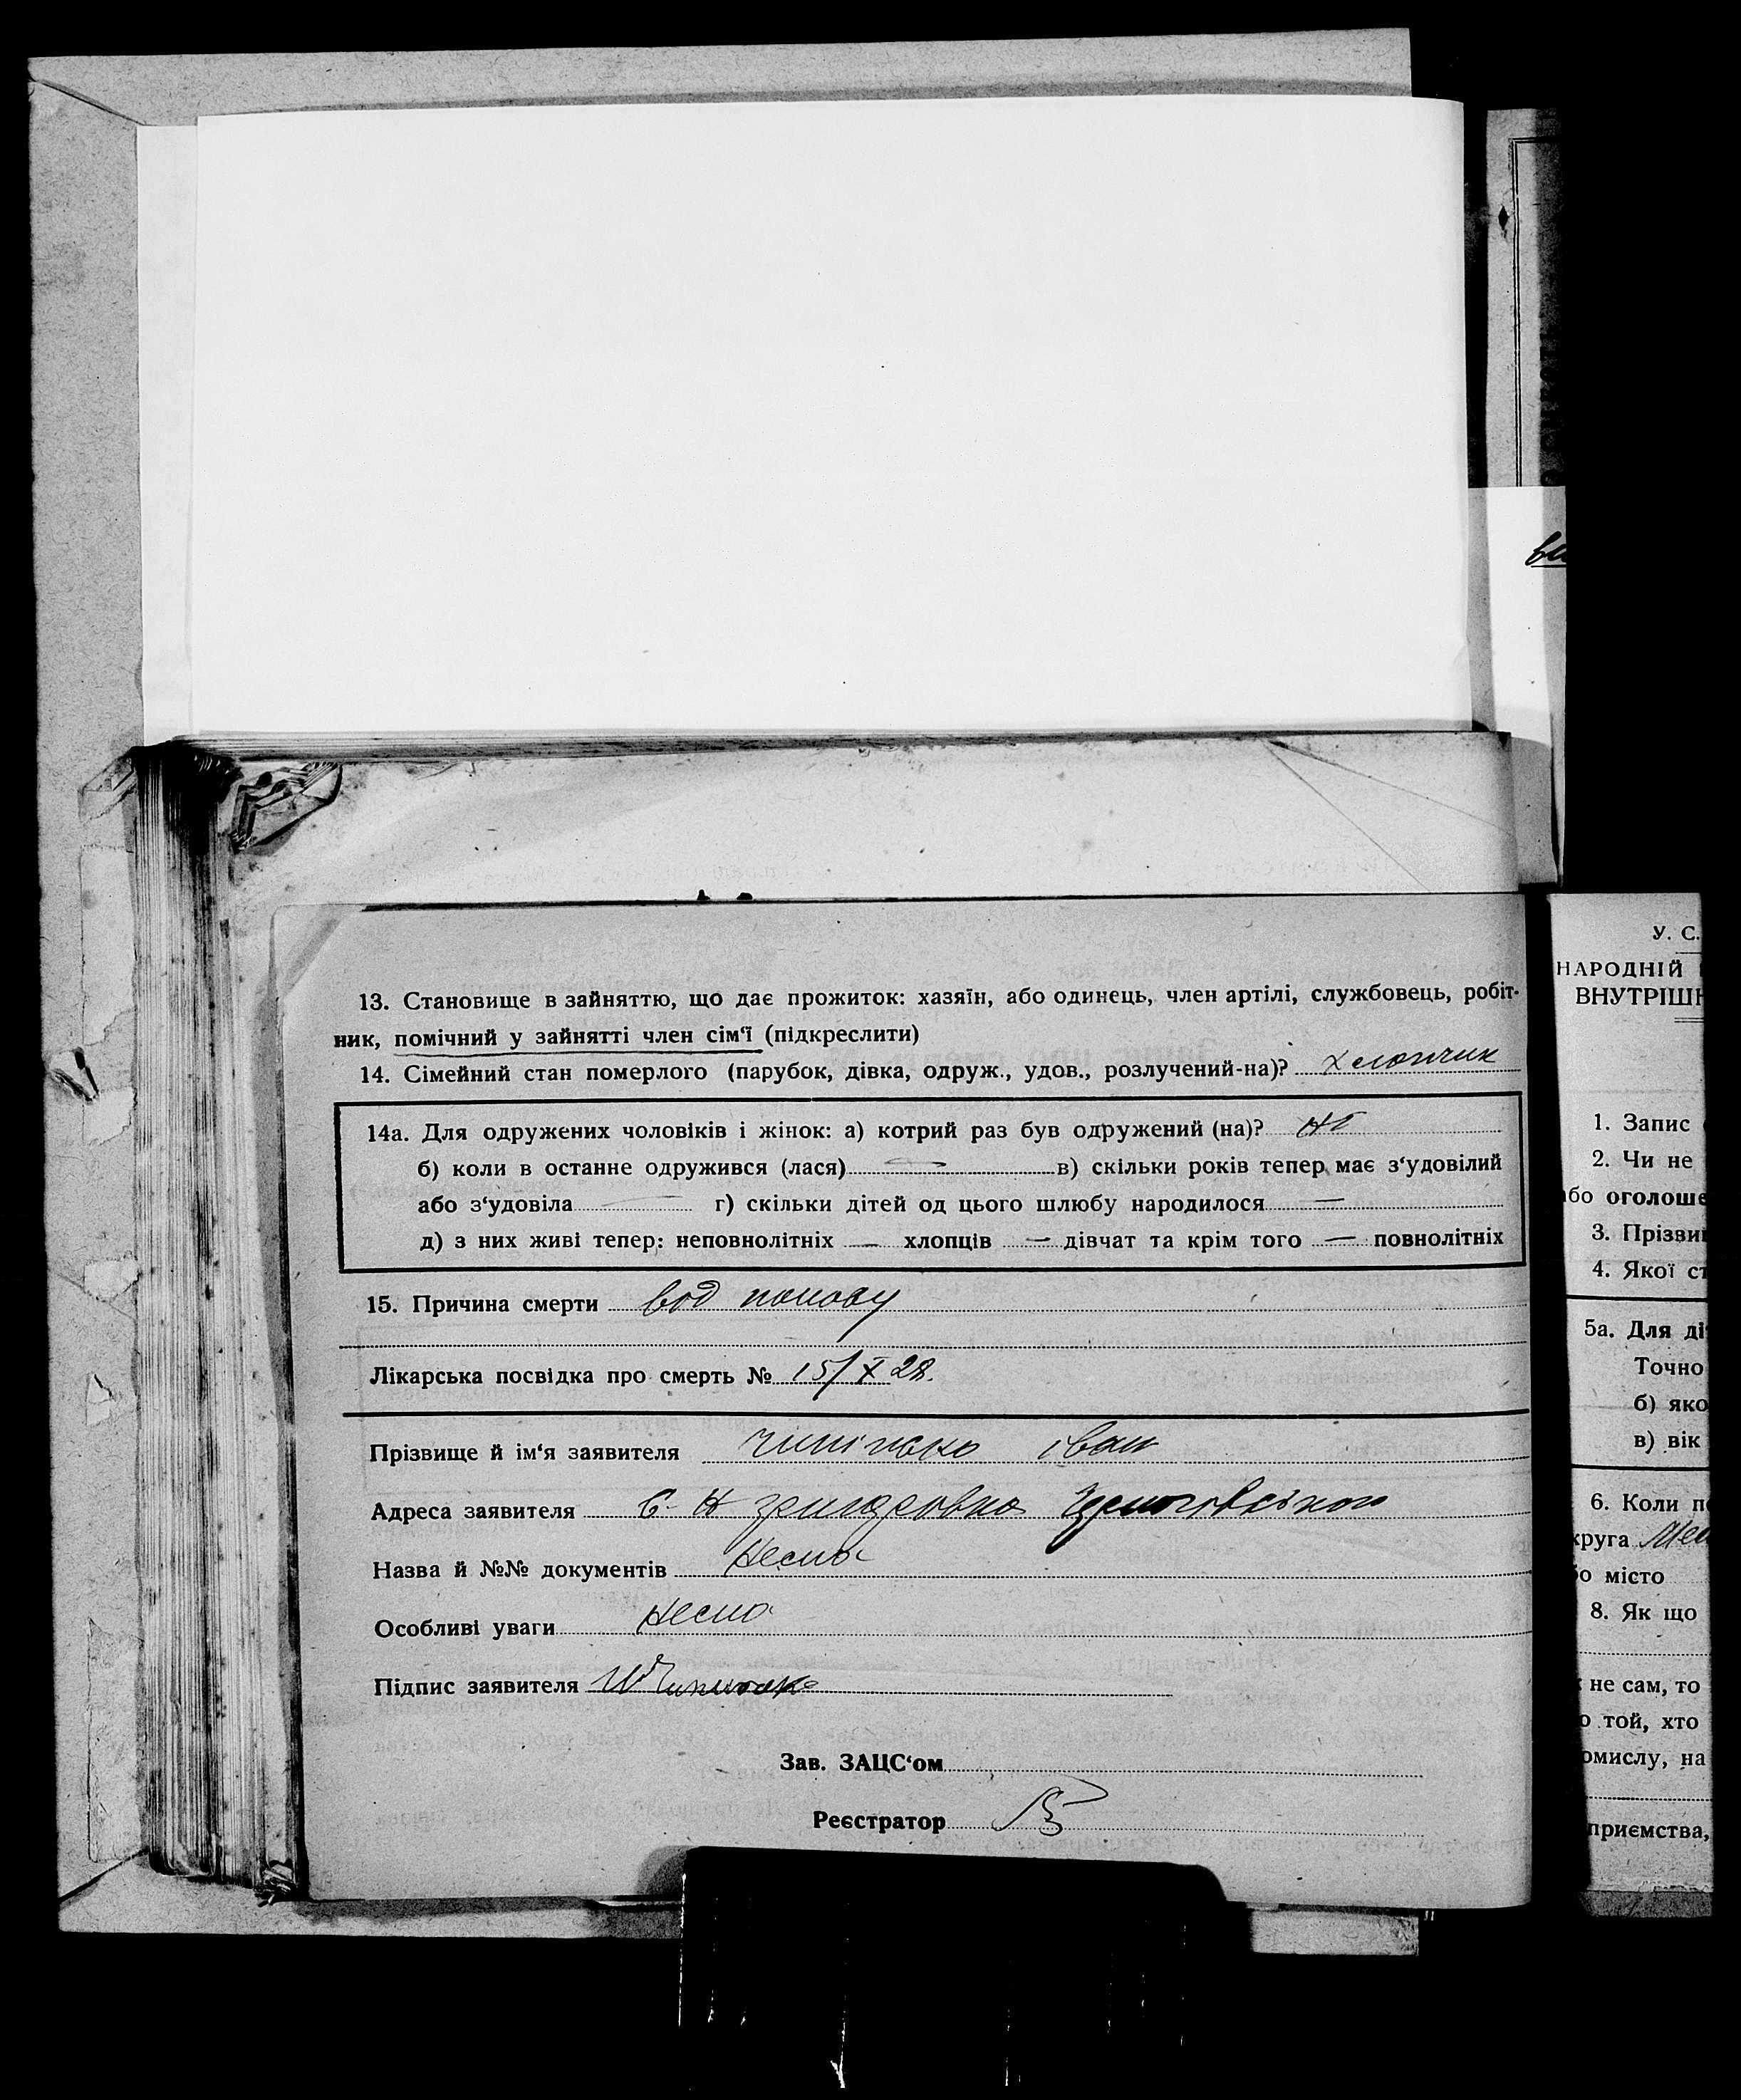 13. Становище в зайняттю, що дає прожиток: хазяїн, або одинець, член артілі, службовець, робіт-
ник, помічний у зайнятті член сім‘ї (підкреслити)
14. Сімейний стан померлого (парубок, дівка, одруж., удов., розлучений-на)? хлопчик
14а. Для одружених чоловіків і жінок: а) котрий раз був одружений (на)?
б) коли в останне одружився (лася) — в) скільки років тепер має з‘удовілий
або з‘удовіла — г) скільки дітей од цього шлюбу народилося —
д) з них живі тепер: неповнолітніх — хлопців — дівчат та крім того — повнолітніх
15. Причина смерти вод поносу
Лікарська посвідка про смерть № 15/X 28.
Прізвище й ім‘я заявителя іван
Адреса заявителя
Назва й №№ документів Нема
Особливі уваги Нема
Підпис заявителя
Зав. ЗАЦС‘ом
Реєстратор
У. С.
НАРОДНІЙ
ВНУТРІШН
1. Запис
2. Чи не
бо оголоше
3. Прізви
4. Якої ст
5а. Для ді
Точно
б) яко
в) вік
6. Коли п
круга Мел
о місто
8. Як що
не сам, то
о той, хто
омислу, на
приємства,